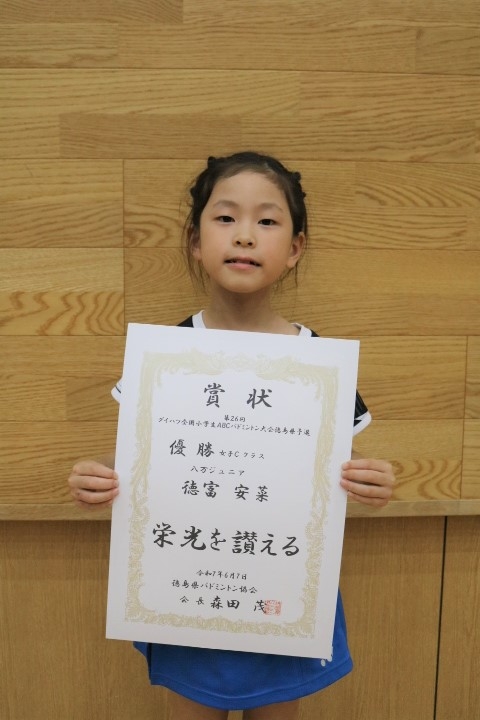 賞状
第26回
ダイハツ全国小学生ABCバドミントン大会徳島県予選
優勝 女子Cクラス
八万ジュニア
徳富 安菜
栄光を讃える
令和7年6月7日
徳島県バドミントン協会
会長 森田 茂